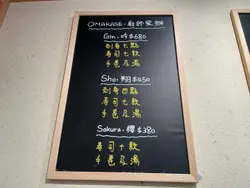 OMAKASE · 廚師發辦
Gin · 吟 $680
刺身七點
壽司七款
手卷及湯
Sho · 翔 $450
刺身四點
壽司七款
手卷及湯
Sakura · 櫻 $380
壽司十款
手卷及湯